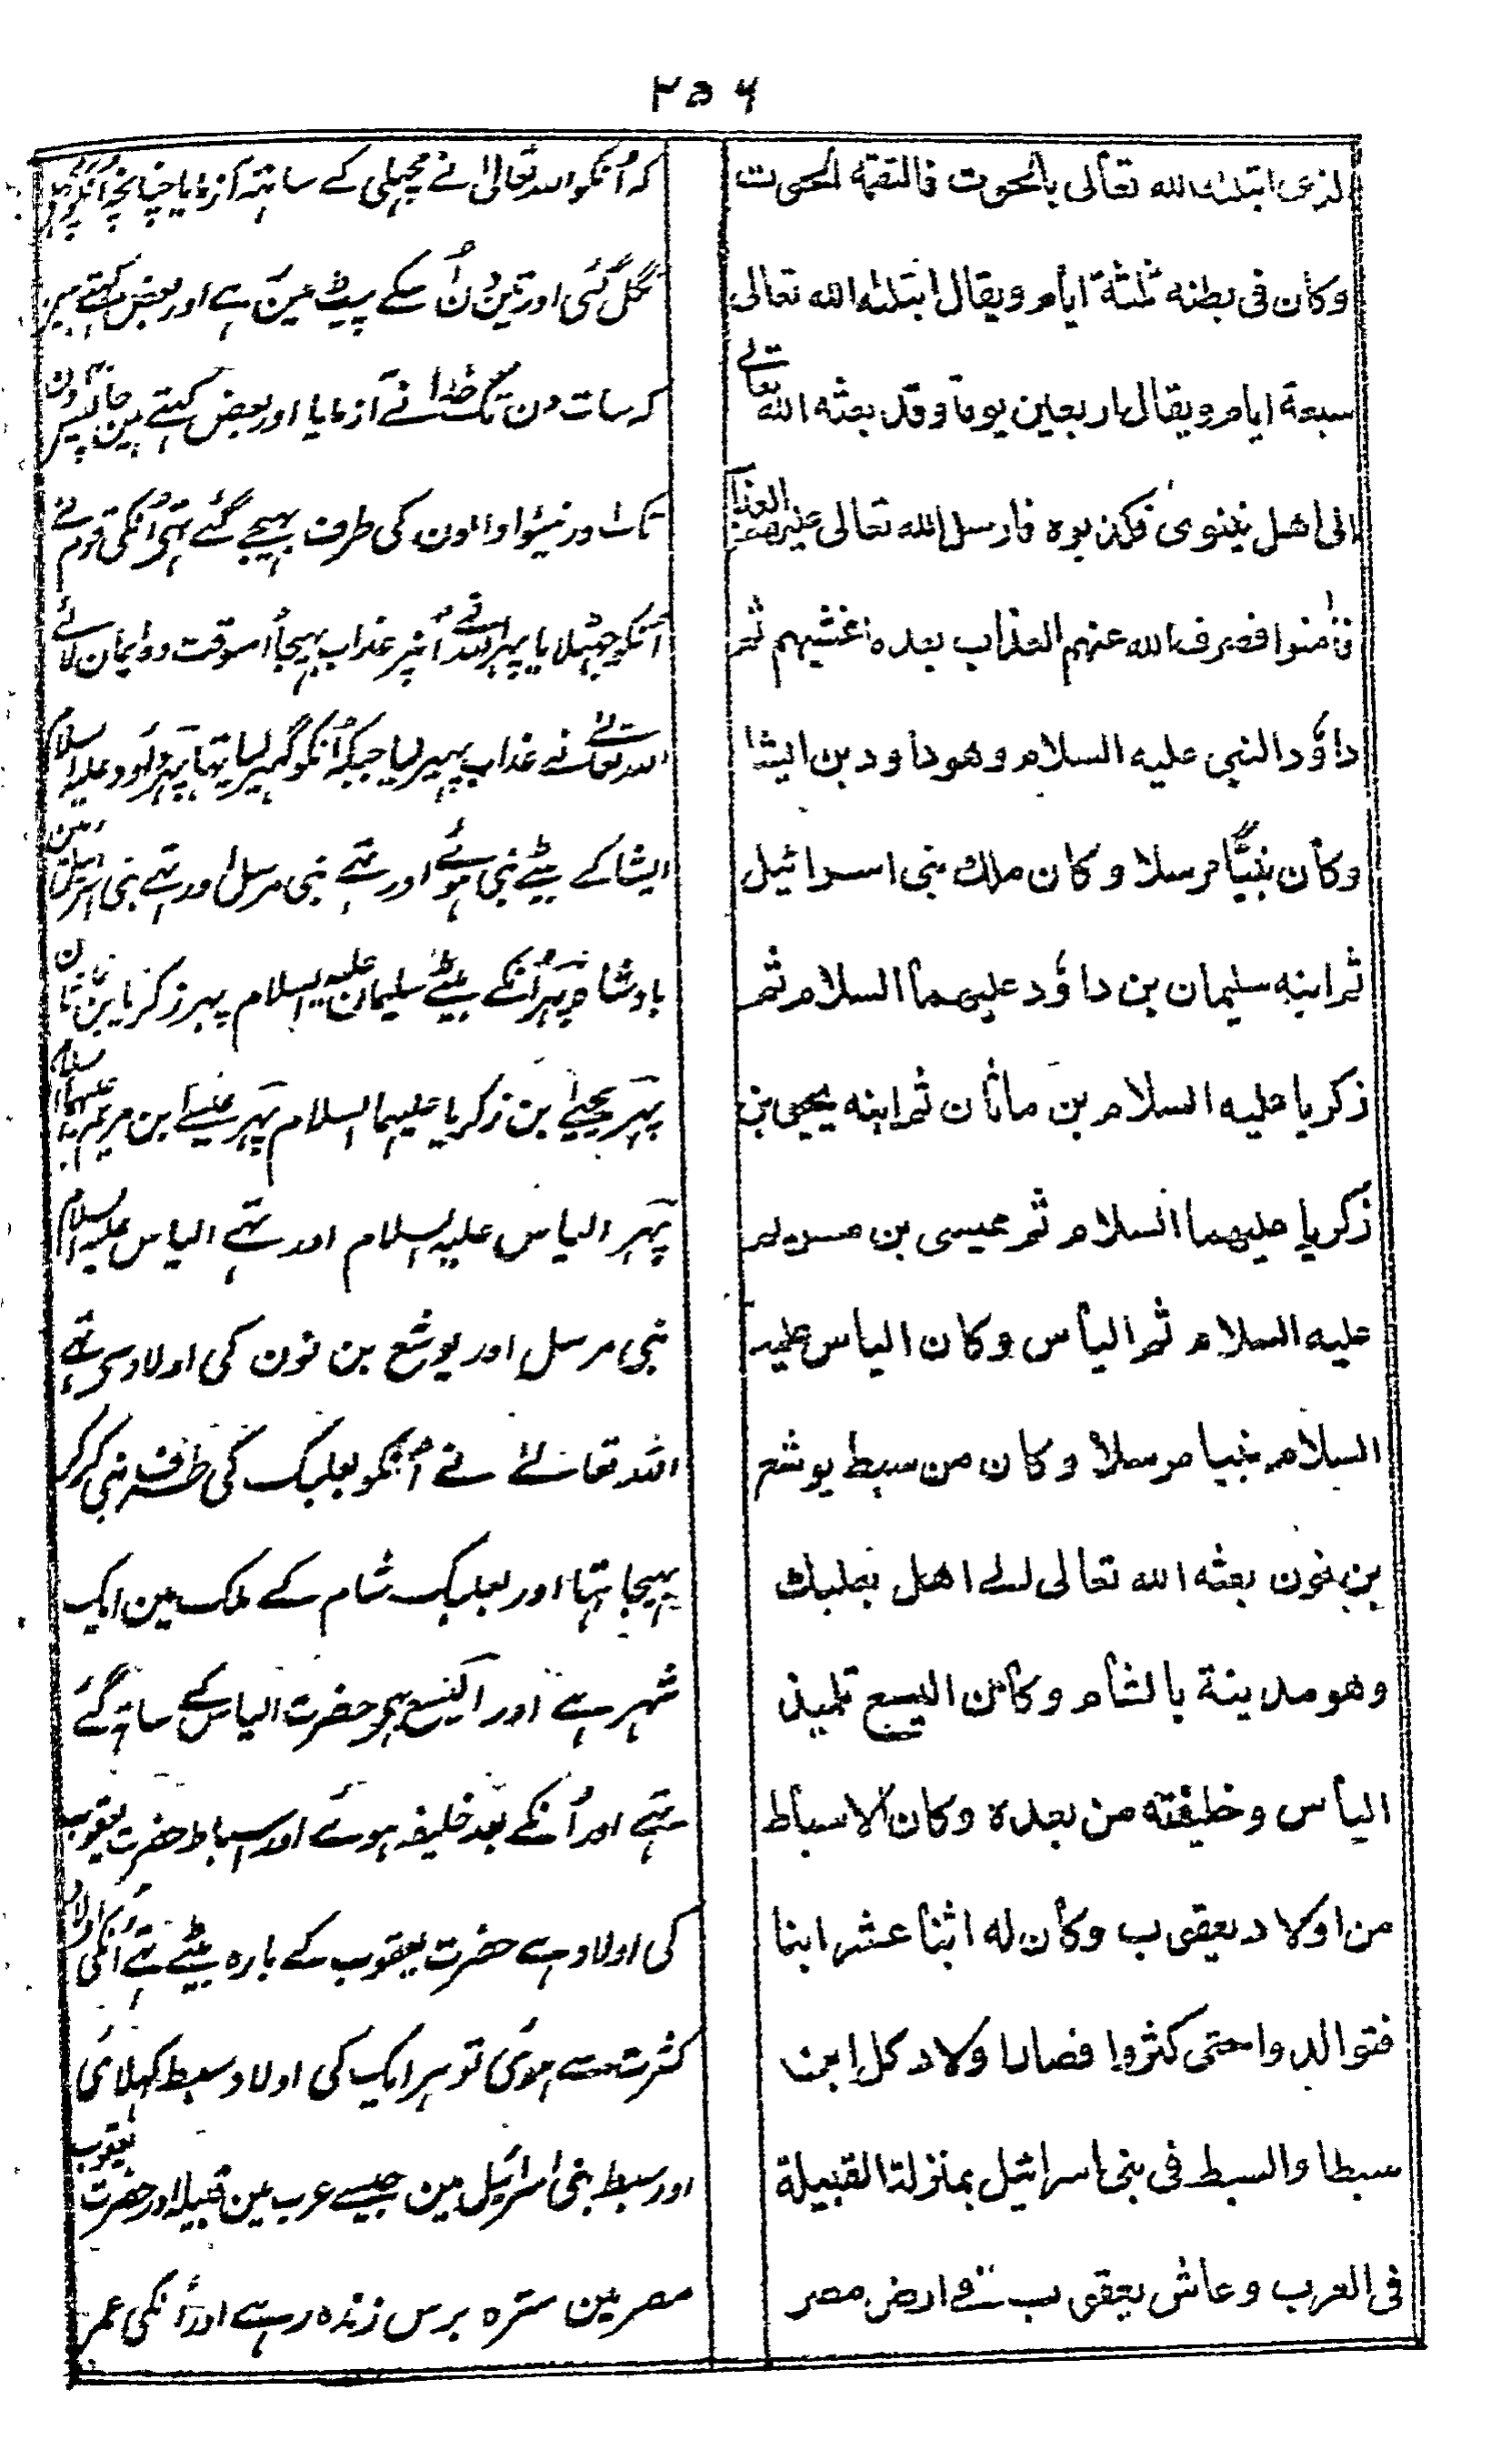 ۲۵۶
الذی ابتلاه الله تعالی بالحوت فالتقمه الحوت
وکان فی بطنه ثلثة ایام ویقال ابتلاه الله تعالی
سبعة ایام ویقال اربعین یوما وقد بعثه الله تعالے
الی اهل نینوی فکذبوه فارسل الله تعالی علیهم العذاب
فآمنوا فصرف الله عنهم العذاب بعده غشیهم ثم
داؤد النبی علیه السلام وهو داود بن ایشا
وکان نبیًّا مرسلا وکان ملك بنی اسرائیل
ثم ابنه سلیمان بن داؤد علیهما السلام ثم
زکریا علیه السلام بن ماثان ثم ابنه یحیی بن
زکریا علیهما السلام ثم عیسی بن مریم
علیه السلام ثم الیاس وکان الیاس علیه
السلام نبیا مرسلا وکان من سبط یوشع
بن نون بعثه الله تعالی الے اهل بعلبك
وهو مدینة بالشام وکان الیسع تلمیذ
الیاس وخلیفته من بعده وکان الاسباط
من اولاد یعقوب وکان له اثنا عشر ابنا
فتوالدوا حتی کثروا فصار اولاد کل ابن
سبطا والسبط فی بنی اسرائیل بمنزلة القبیلة
فی العرب وعاش یعقوب فے ارض مصر
کہ اُنکو اللہ تعالیٰ نے مچہلی کے ساتہہ آزمایا چنانچہ اُنکو مچہلی
نگل گئی اور تین دن اُسکے پیٹ مین رہے اور بعض کہتے ہین
کہ سات دن تک خدا نے آزمایا اور بعض کہتے ہین چالیس دن
تک اور نینوا والون کی طرف بہیجے گئے تہے اُنکی قوم نے
اُنکو جہٹلایا پہر اللہ نے اُنپر عذاب بہیجا اُسوقت وہ ایمان لائے
اللہ تعالے نے عذاب پہیر لیا جبکہ اُنکو گہیر لیا تہا پہر داؤد علیہ السلام
ایشا کے بیٹے نبی ہوئے اور تہے نبی مرسل اور تہے بنی اسرائیل مین
بادشاہ پہر اُنکے بیٹے سلیمان علیہ السلام پہر زکریا بن ماثان
پہر یحیے بن زکریا علیہما السلام پہر عیسے ابن مریم علیہما السلام
پہر الیاس علیہ السلام اور تہے الیاس علیہ السلام
نبی مرسل اور یوشع بن نون کی اولاد سے تہے
اللہ تعالے نے اُنکو بعلبک کی طرف نبی کرکر
بہیجا تہا اور بعلبک شام کے ملک مین ایک
شہر ہے اور الیسع بہی حضرت الیاس کے ساتہہ گئے
تہے اور اُنکے بعد خلیفہ ہوئے اور اسباط حضرت یعقوب
کی اولاد ہے حضرت یعقوب کے بارہ بیٹے تہے اُنکی اولاد
کثرت سے ہوئی تو ہر ایک کی اولاد سبط کہلائی
اور سبط بنی اسرائیل مین جیسے عرب مین قبیلہ اور حضرت یعقوب
مصر مین سترہ برس زندہ رہے اور اُنکی عمر